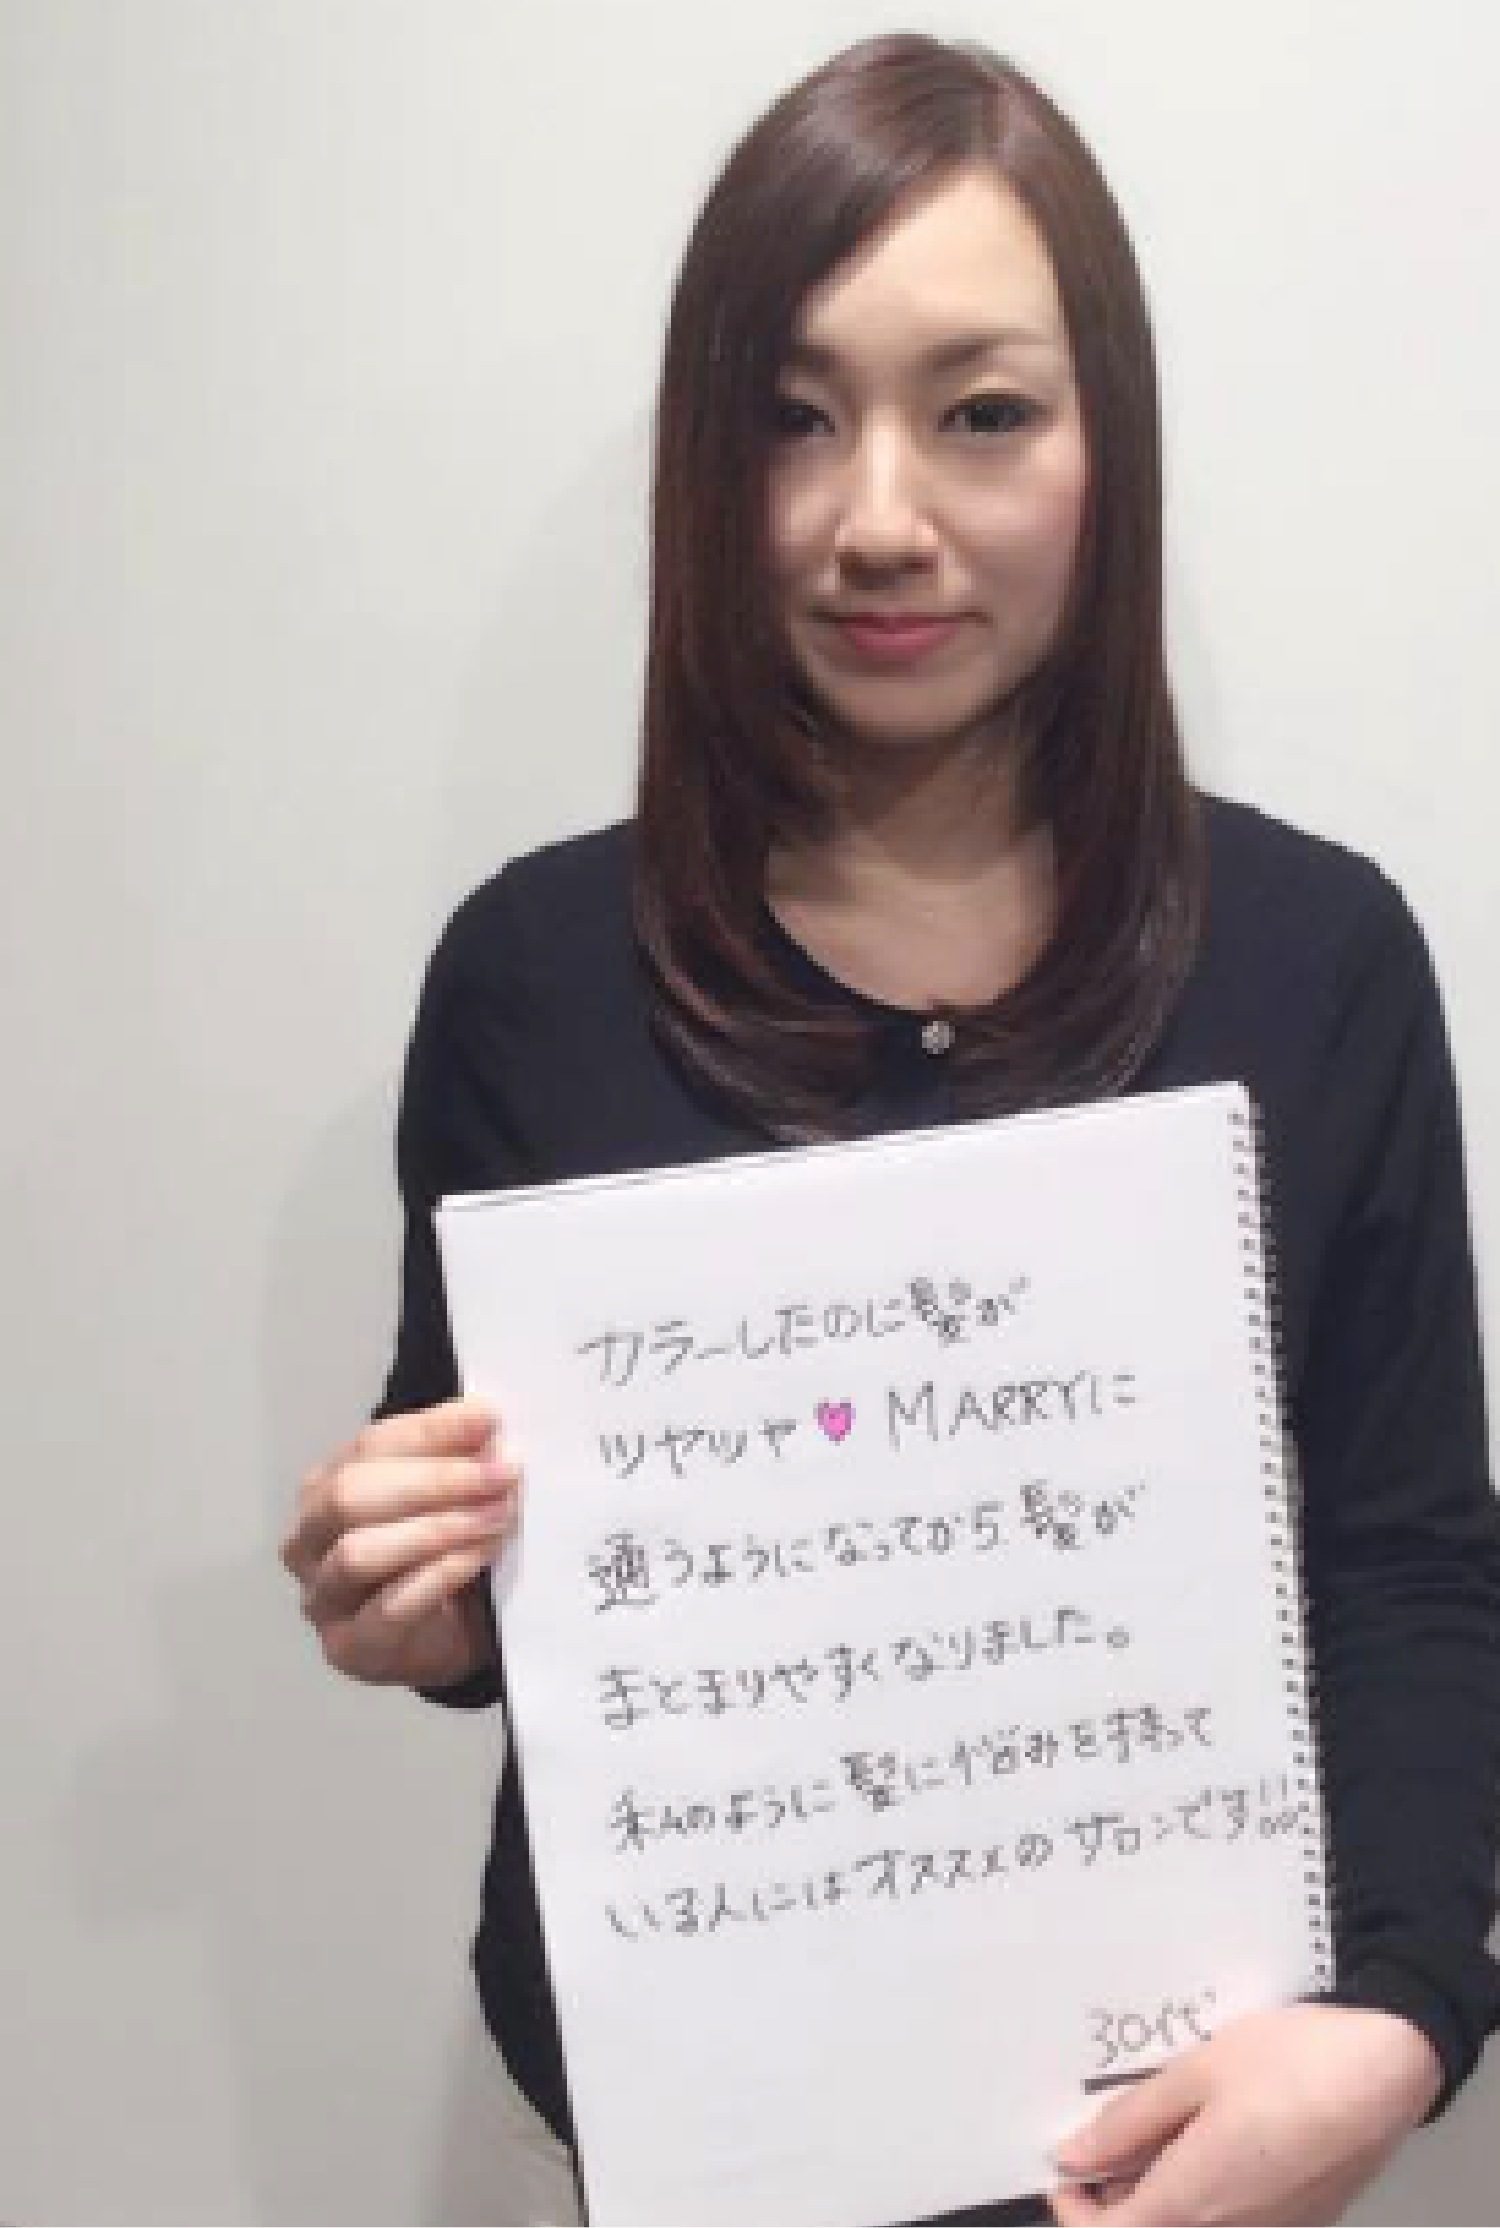 カラーしたのに髪が
ツヤツヤ♥ MARRYに
通うようになってから髪が
まとまりやすくなりました。
私のように髪に悩みを持って
いる人にはオススメのサロンです!!
30代